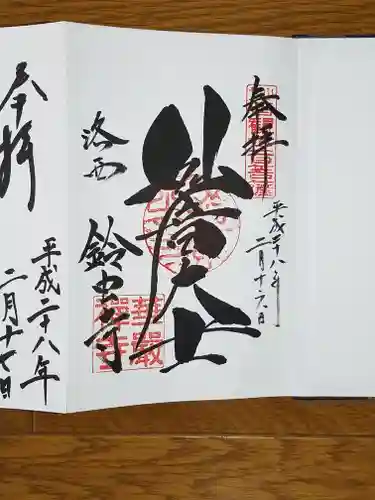 奉拝
平成二十八年
二月十六日
大士
洛西
鈴虫寺
華嚴
禅寺
奉拝
平成二十八年
二月十七日